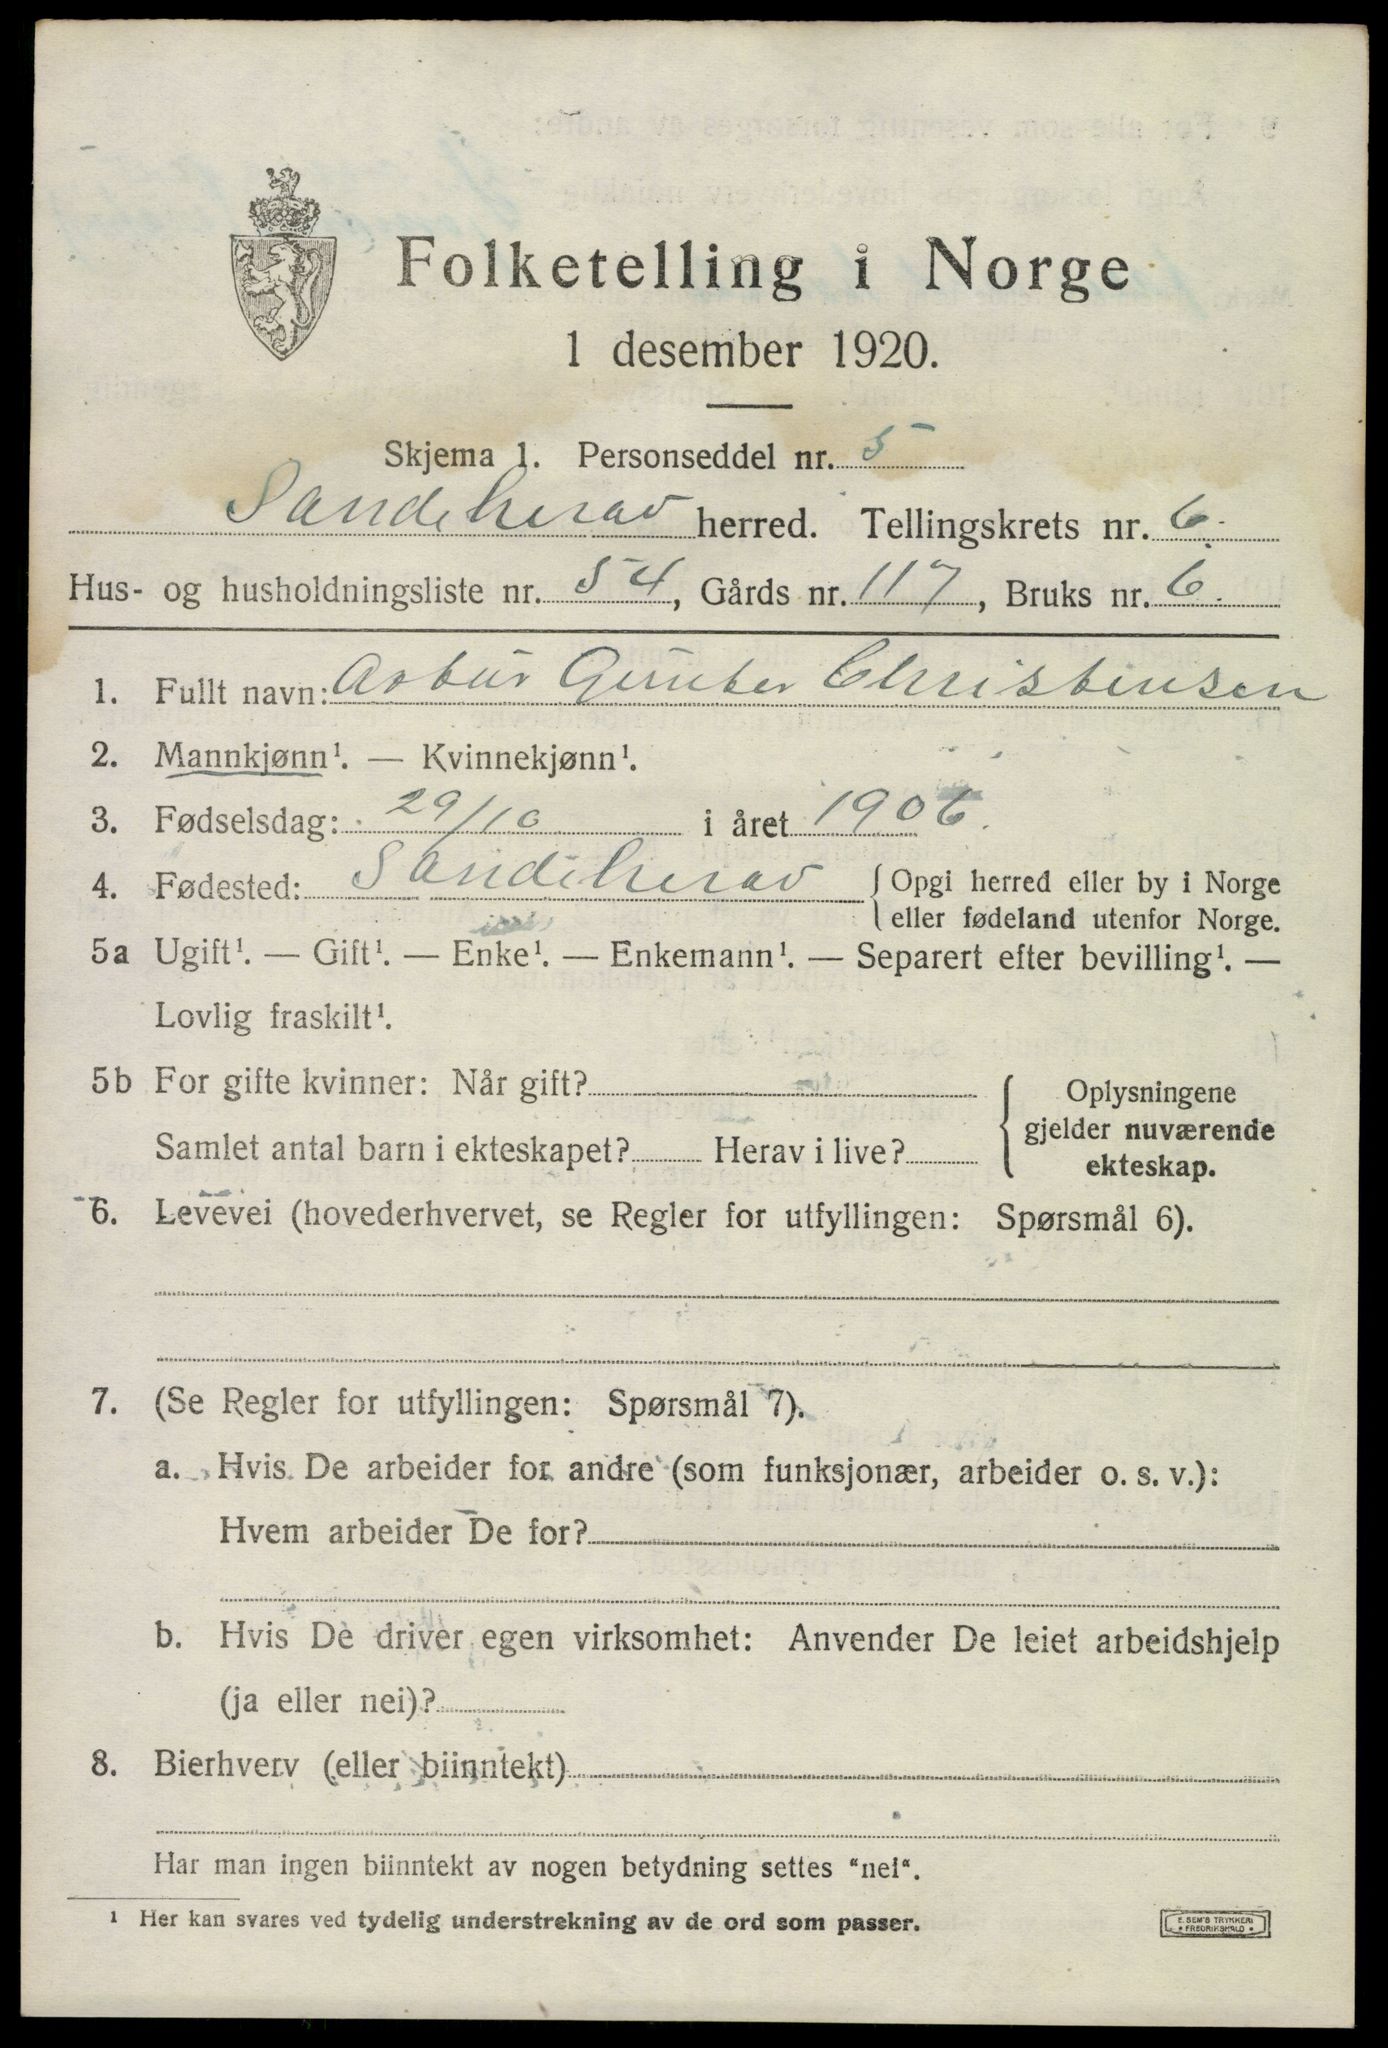 Folketelling i Norge
1 desember 1920.
Skjema 1. Personseddel nr. 5
Sandeherav herred. Tellingskrets nr. 6.
Hus- og husholdningsliste nr. 54, Gårds nr. 117, Bruks nr. 6.
1. Fullt navn: Artur Gunter Christensen
2. Mannkjønn¹. — Kvinnekjønn¹.
3. Fødselsdag: 29/10 i året 1906.
4. Fødested: Sandeherav {Opgi herred eller by i Norge
eller fødeland utenfor Norge.
5a Ugift¹. — Gift¹. — Enke¹. — Enkemann¹. — Separert efter bevilling¹. —
Lovlig fraskilt¹.
5b For gifte kvinner: Når gift?
Samlet antal barn i ekteskapet? Herav i live?
{Oplysningene
gjelder nuværende
ekteskap.
6. Levevei (hovederhvervet, se Regler for utfyllingen: Spørsmål 6).
7. (Se Regler for utfyllingen: Spørsmål 7).
a. Hvis De arbeider for andre (som funksjonær, arbeider o. s. v.):
Hvem arbeider De for?
b. Hvis De driver egen virksomhet: Anvender De leiet arbeidshjelp
(ja eller nei)?
8. Bierhverv (eller biinntekt)
Har man ingen biinntekt av nogen betydning settes "nei".
¹ Her kan svares ved tydelig understrekning av de ord som passer.
E. SEM'S TRYKKERI
• FREDRIKSHALD •